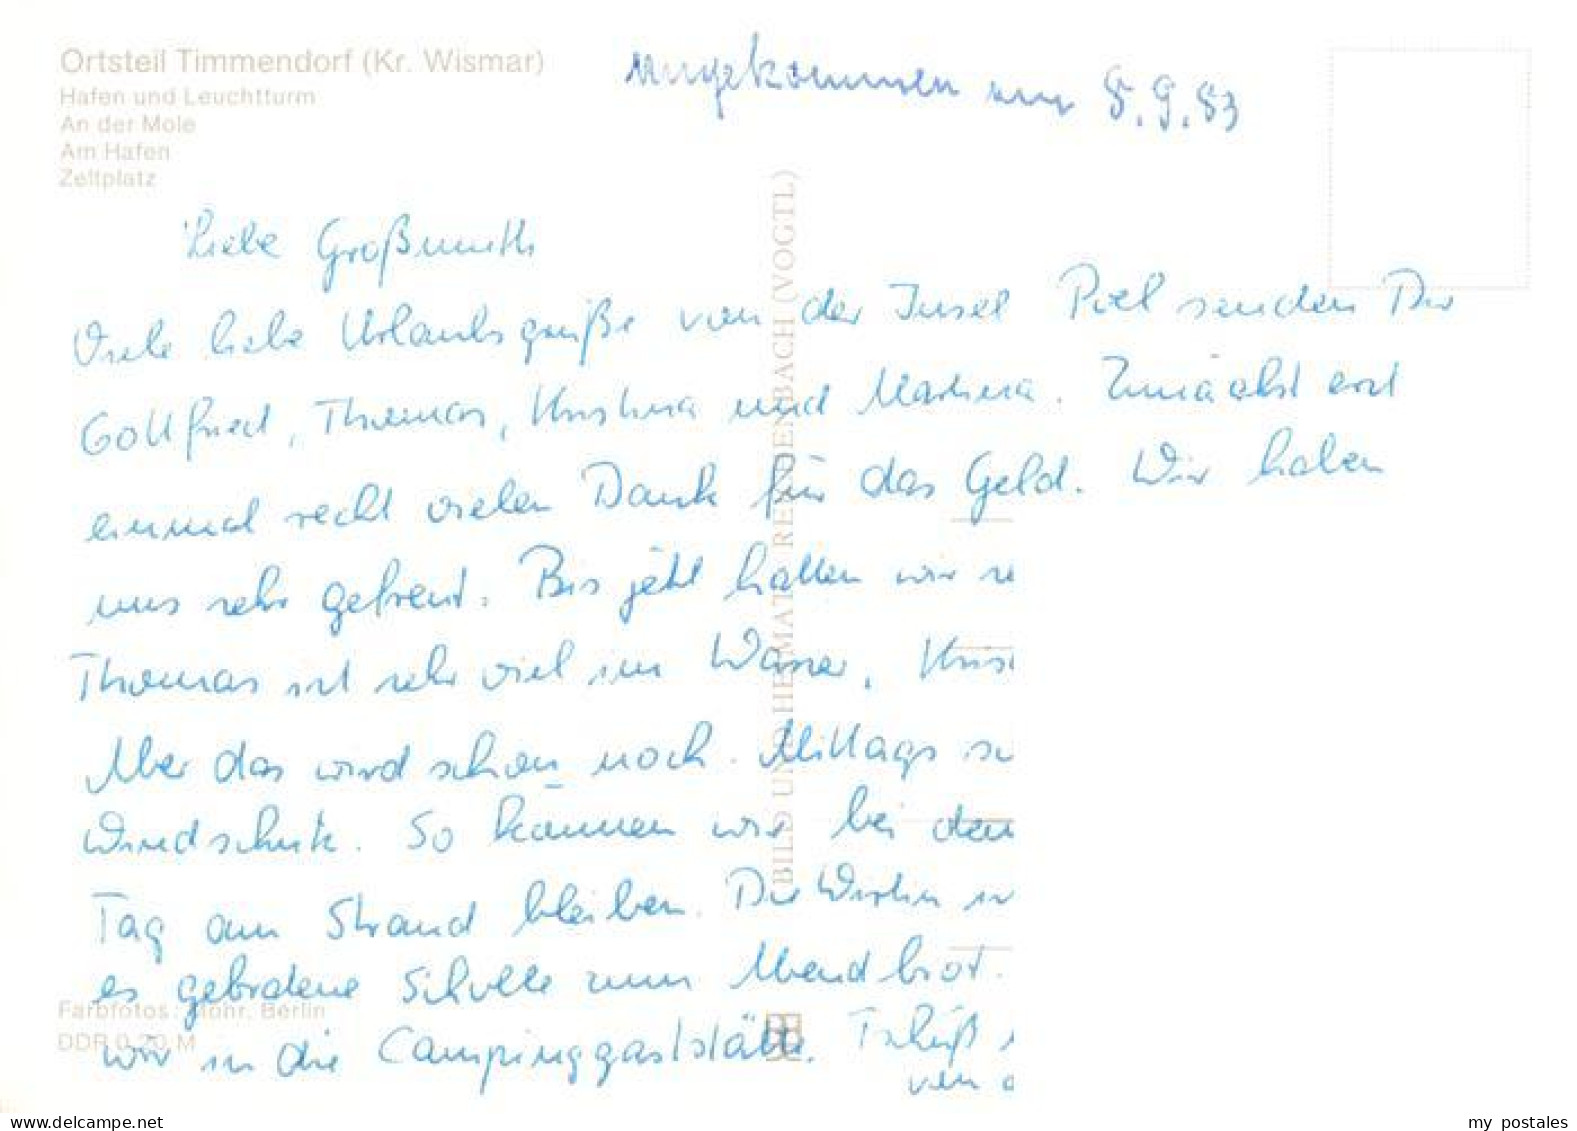 Ortsteil Timmendorf (Kr. Wismar)
Hafen und Leuchtturm
An der Mole
Am Hafen
Zeltplatz
angekommen am 5.9.83
Liebe Großmutti
Viele liebe Urlaubsgrüße von der Insel Poel senden Dir
Gottfried, Thomas, Kristina und Martina. Zunächst erst
einmal recht vielen Dank für das Geld. Wir haben
uns sehr gefreut. Bis jetzt hatten wir
Thomas ist sehr viel im Wasser,
Aber das wird schon noch. Mittags
Windschutz. So können wir bei
Tag am Strand bleiben. Die Wirtin
es gebratene Scholle zum Abendbrot.
wir in die Campinggaststätte. Tschüß
von
BILD UND HEIMAT REICHENBACH (VOGTL)
Farbfotos: Mohr, Berlin
DDR 0,20 M
my postales